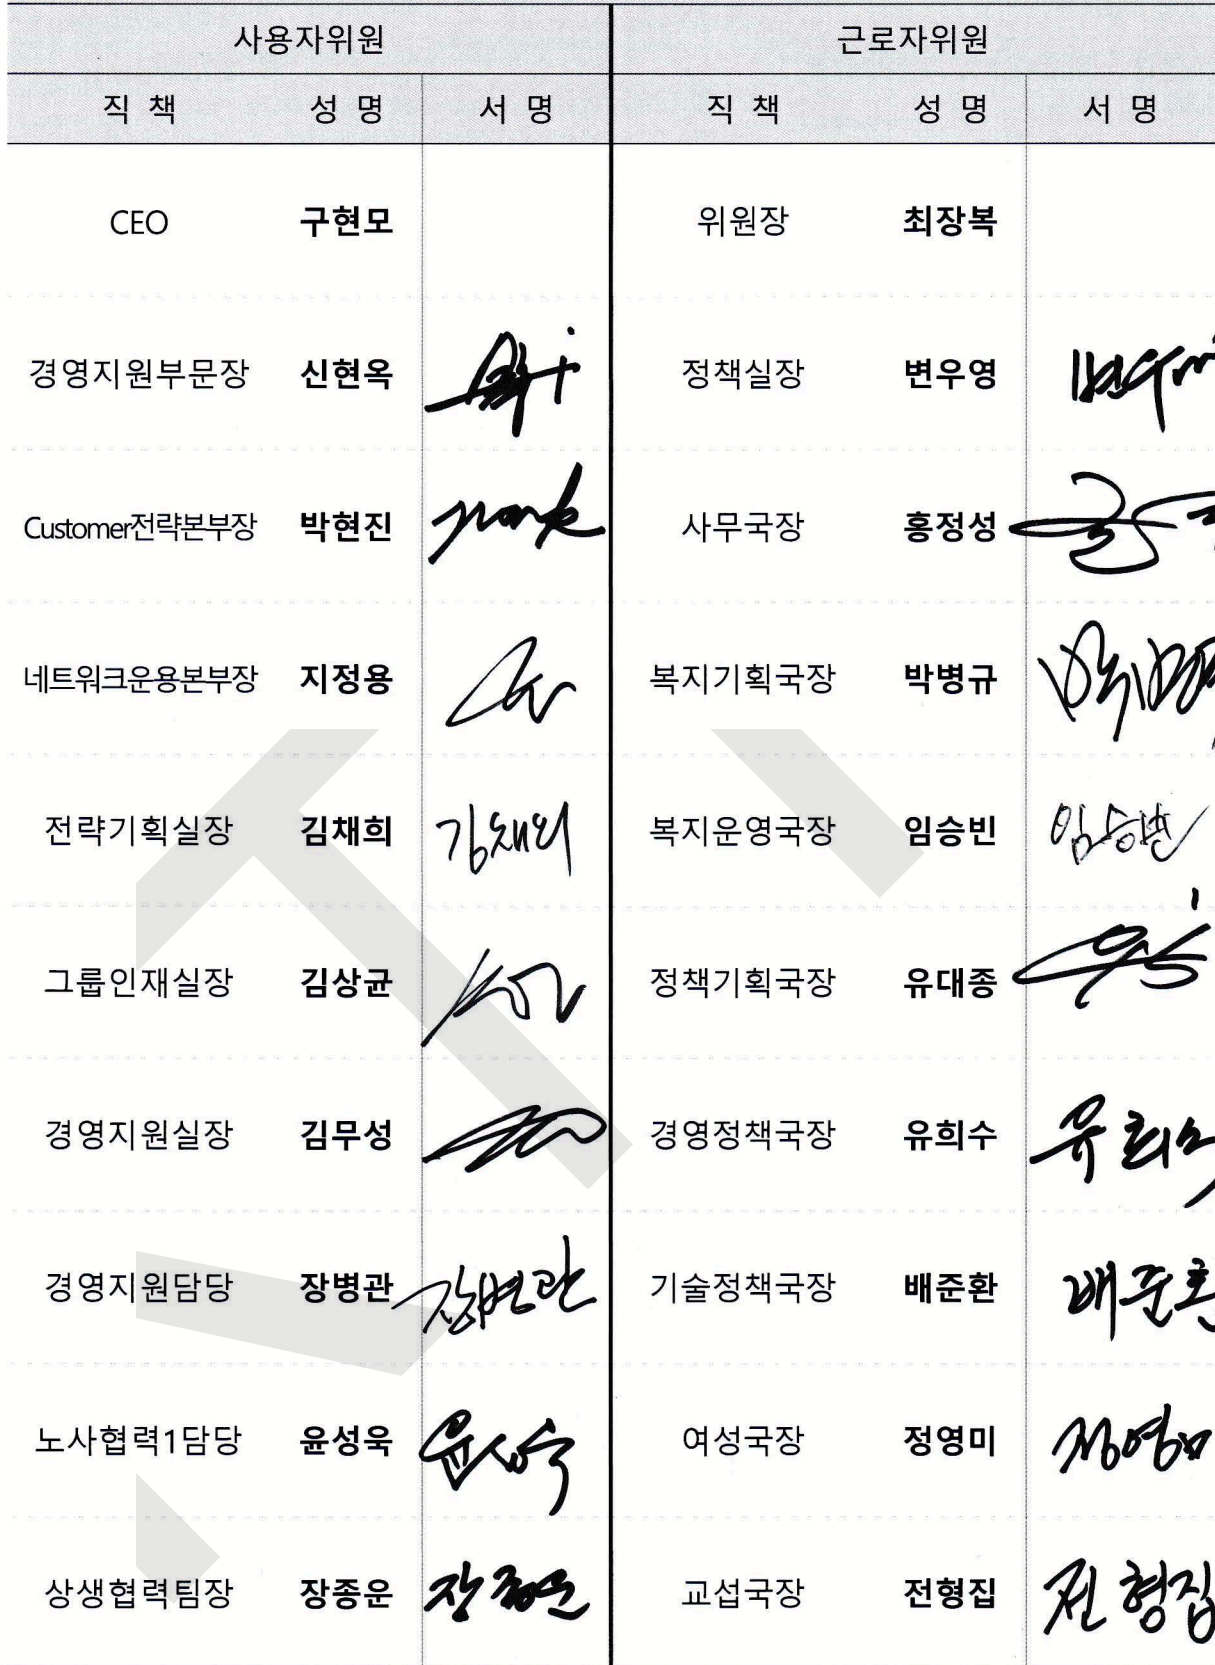 사용자위원 근로자위원
직 책 성 명 서 명 직 책 성 명 서 명
CEO 구현모 위원장 최장복
경영지원부문장 신현옥 정책실장 변우영
Customer전략본부장 박현진 사무국장 홍정성
네트워크운용본부장 지정용 복지기획국장 박병규
전략기획실장 김채희 김채희 복지운영국장 임승빈 임승빈
그룹인재실장 김상균 정책기획국장 유대종
경영지원실장 김무성 경영정책국장 유희수 유희수
경영지원담당 장병관 장병관 기술정책국장 배준환 배준환
노사협력1담당 윤성욱 여성국장 정영미 정영미
상생협력팀장 장종운 장종운 교섭국장 전형집 전형집